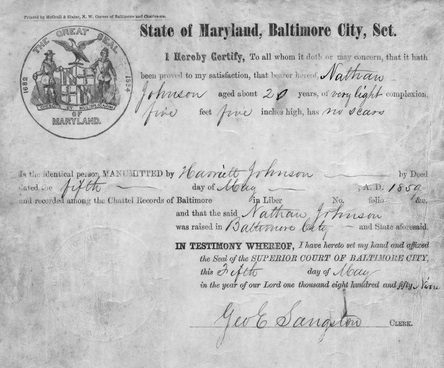 Printed by McGill & Slater, N. W. Corner of Baltimore and
State of Maryland, Baltimore City, Sct.
THE GREAT SEAL
1632 1854
OF
MARYLAND.
I Hereby Certify, To all whom it doth or may concern, that it hath
been proved to my satisfaction, that bearer hereof, Nathan
Johnson aged about 20 years, of very light complexion,
five feet five inches high, has no scars
Is the identical person, MANUMITTED by Harriett Johnson by Deed
dated the fifth day of May A. D. 1859
and recorded among the Chattel Records of Baltimore in Liber No. folio &c.
and that the said Nathan Johnson
was raised in Baltimore City and State aforesaid.
IN TESTIMONY WHEREOF, I have hereto set my hand and affixed
the Seal of the SUPERIOR COURT OF BALTIMORE CITY,
this Fifth day of May
in the year of our Lord one thousand eight hundred and fifty Nine
Geo E Sangston CLERK.